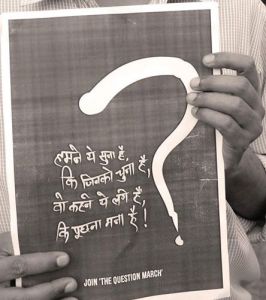 हमने ये सुना है,
कि जिनको चुना है,
वो कहने ये लगे हैं,
कि पूछना मना है!
JOIN 'THE QUESTION MARCH'